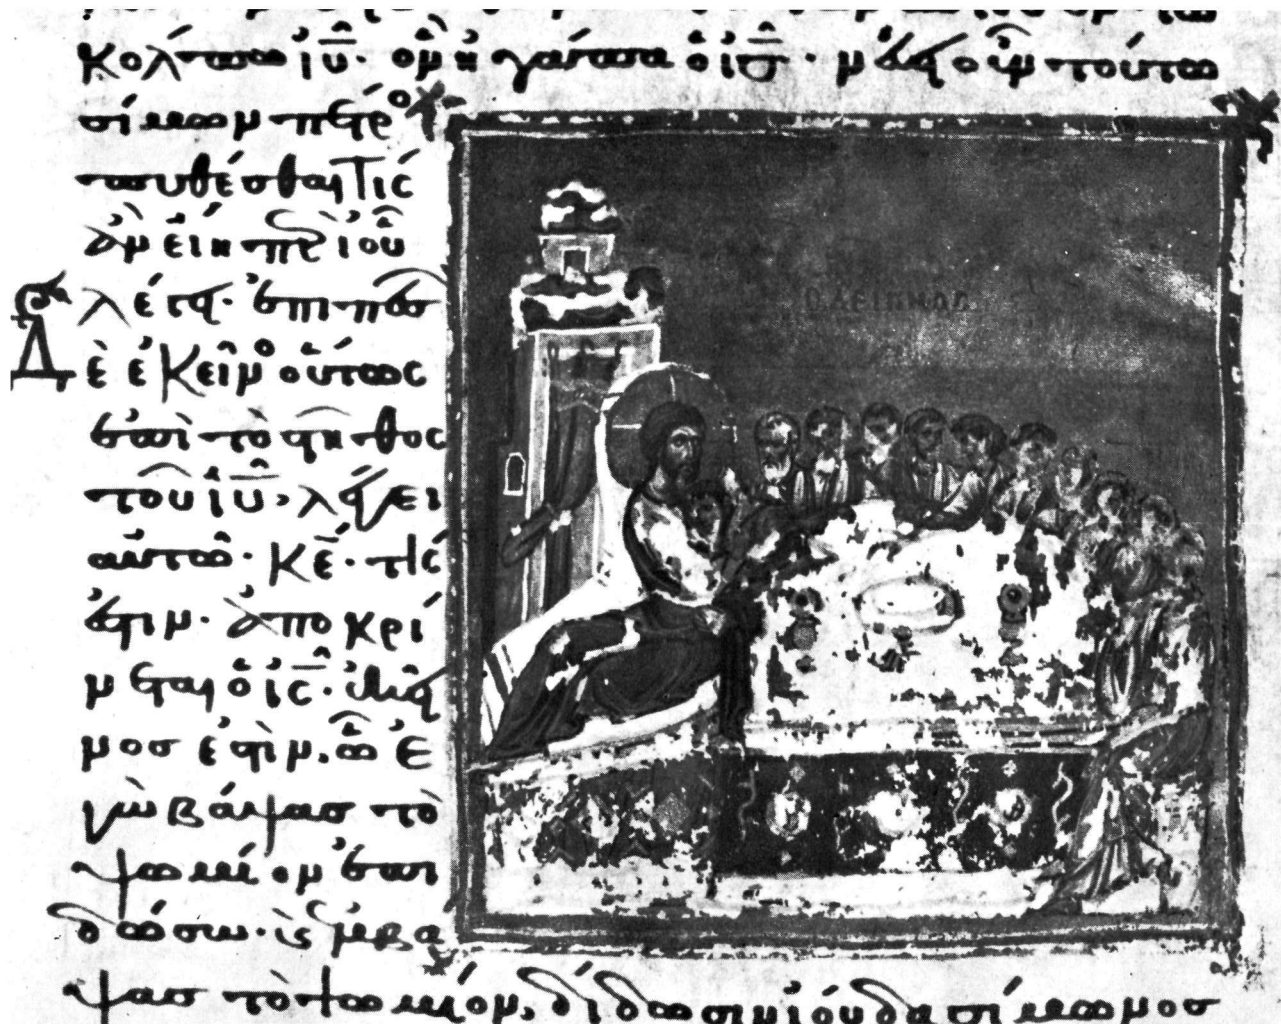 κόλπω ἰῦ· ὃν ἠγάπα ὁ ἰς̄· νεύει οὖν τούτω
σίμων πέτρο
πυθέσθαι τίς
ἂν εἴη περὶ οὗ
λέγει· ἐπιπεσὼν
Δὲ ἐκεῖνο οὕτως
ἐπὶ τὸ στῆθος
τοῦ ἰῦ, λέγει
αὐτῶ· κε̄· τίς
ἐστιν· ἀποκρί
νεται ὁ ἰς̄· ἐκεῖ
νοσ ἐστὶν, ὧ ἐ
γὼ βάψασ τὸ
ψωμίον ἐπι
δώσω· κ ἐμβά
ψασ τὸ ψωμίον, δίδωσιν ἰούδα σίμωνοσ
Ο ΔΕΙΠΝΟΣ